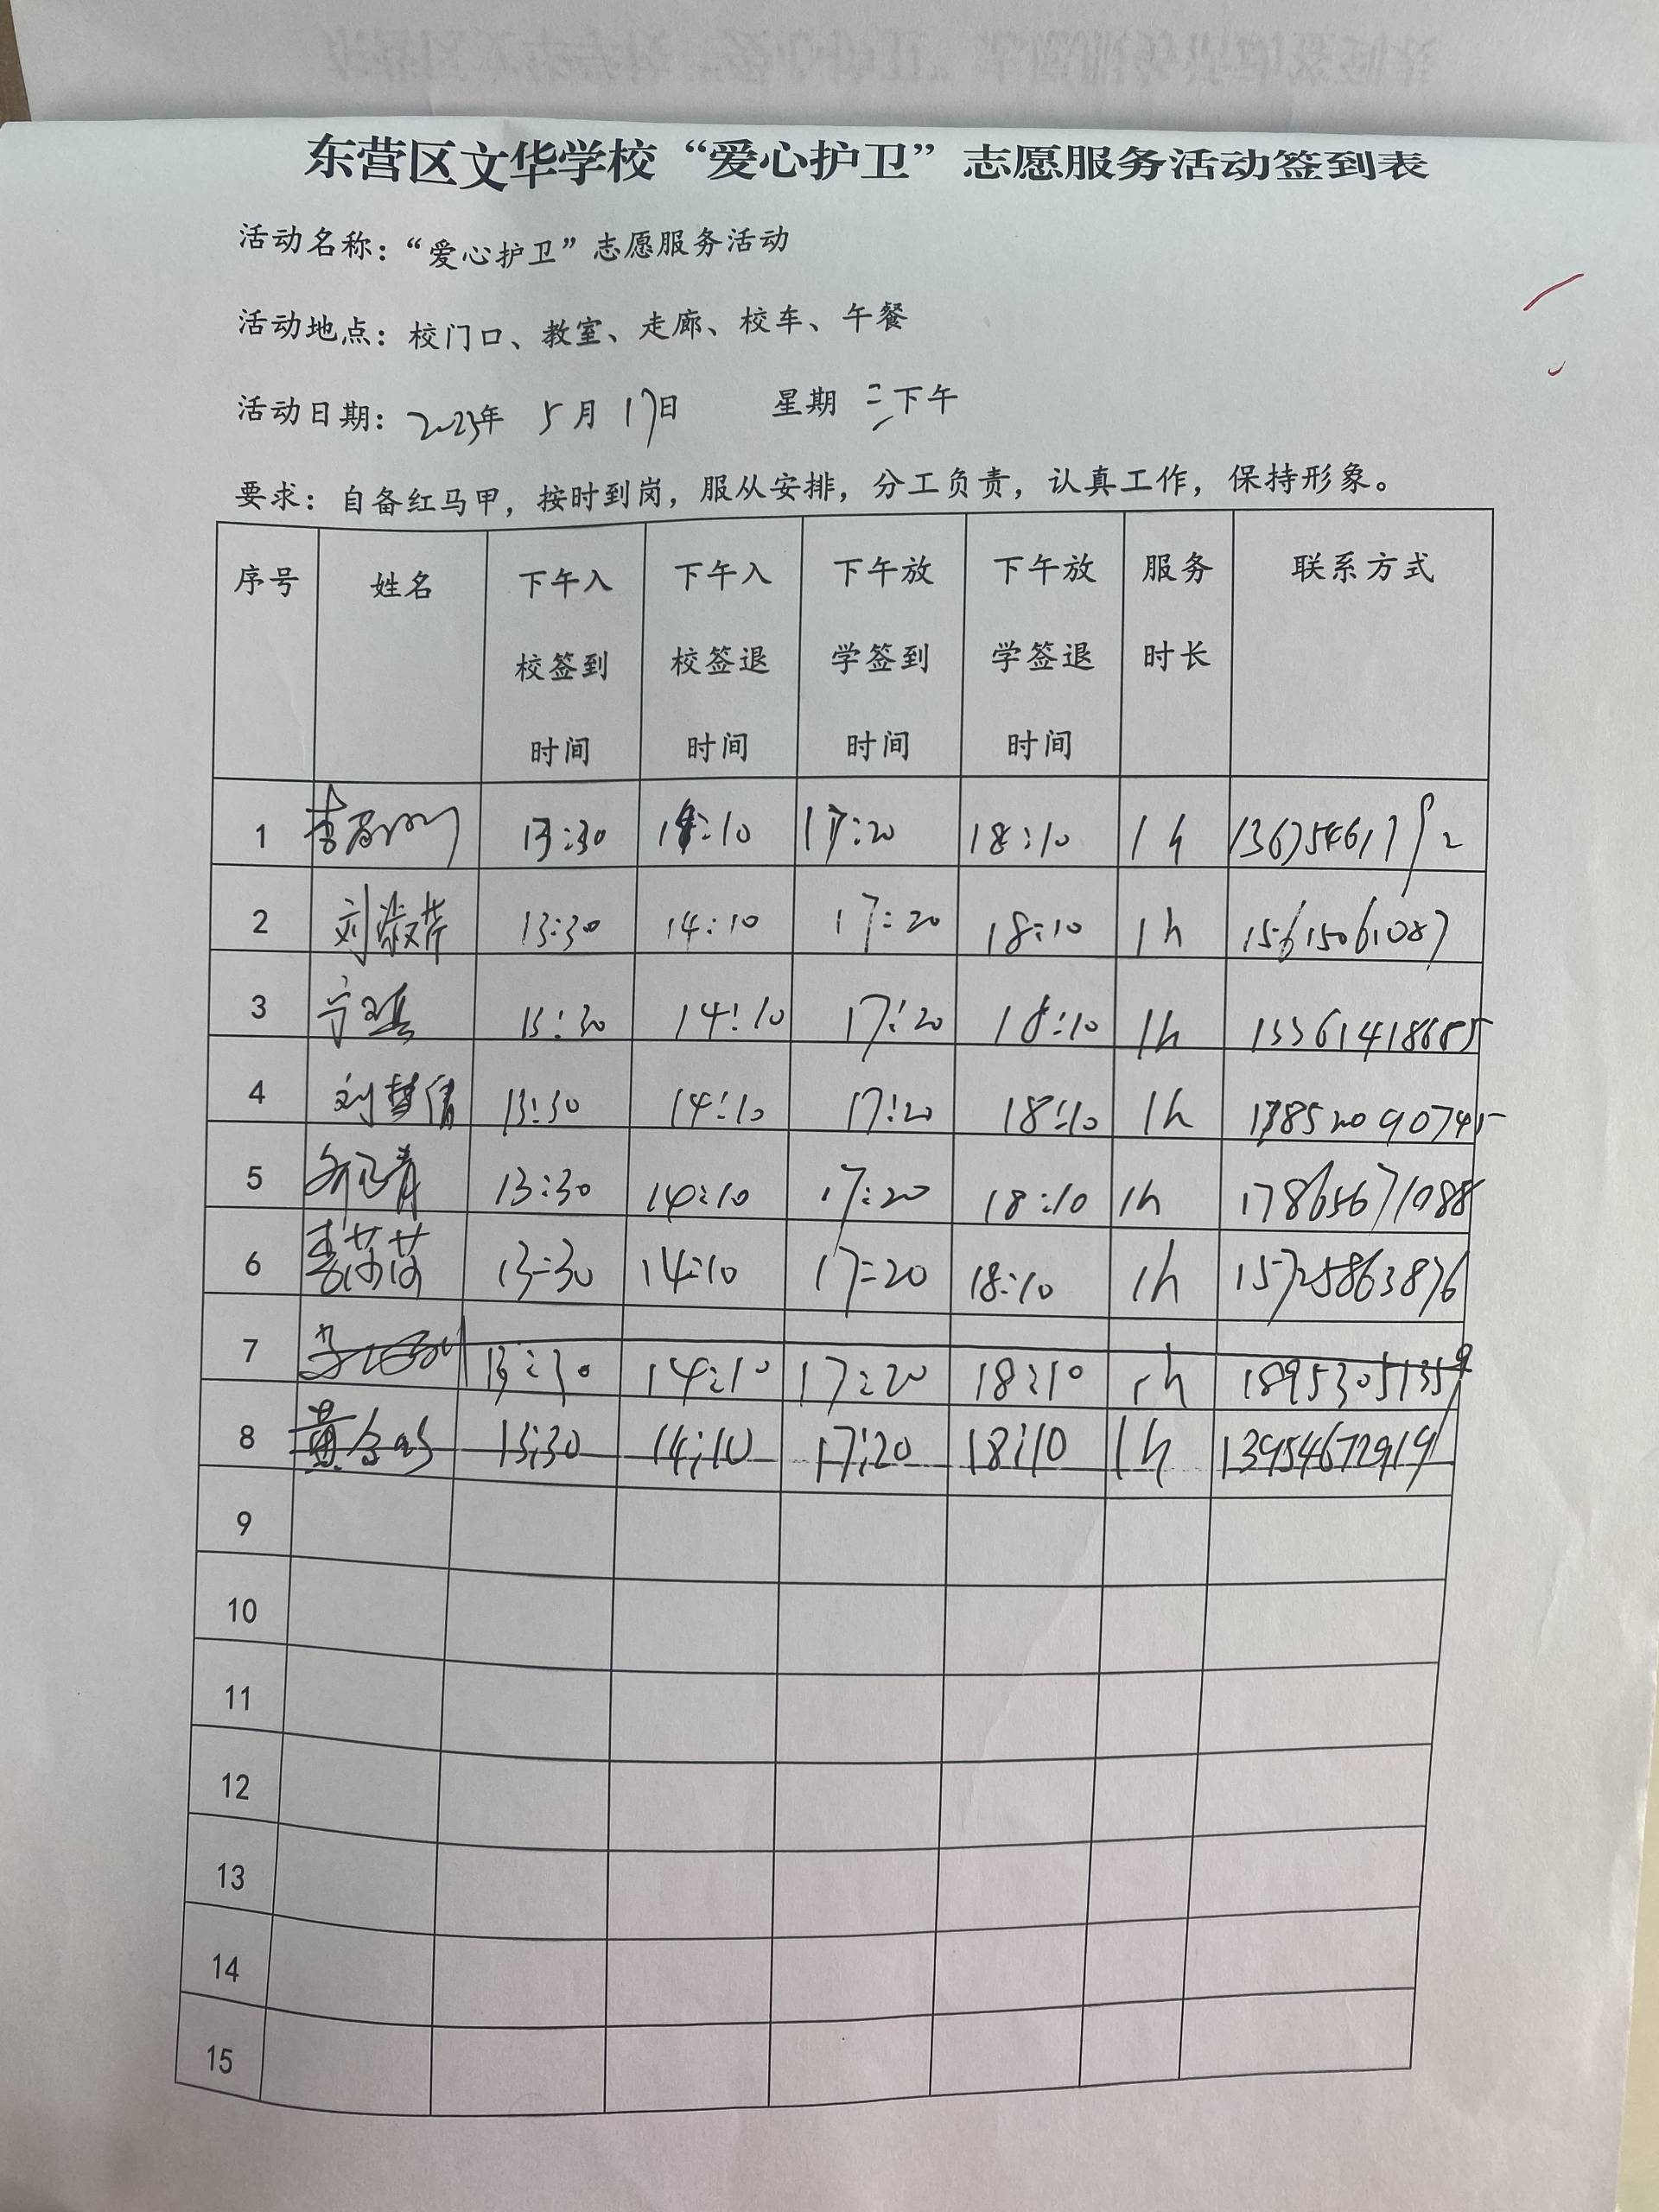 东营区文华学校“爱心护卫”志愿服务活动签到表
活动名称：“爱心护卫”志愿服务活动
活动地点：校门口、教室、走廊、校车、午餐
活动日期：2023年 5月17日 星期三下午
要求：自备红马甲，按时到岗，服从安排，分工负责，认真工作，保持形象。
序号 姓名 下午入校签到时间 下午入校签退时间 下午放学签到时间 下午放学签退时间 服务时长 联系方式
1 13:30 14:10 17:20 18:10 1h
2 刘淑芹 13:30 14:10 17:20 18:10 1h 15615061087
3 13:30 14:10 17:20 18:10 1h 13361418685
4 刘梦倩 13:30 14:10 17:20 18:10 1h
5 13:30 14:10 17:20 18:10 1h
6 袁莎莎 13:30 14:10 17:20 18:10 1h 15725863876
7 13:30 14:10 17:20 18:10 1h 18953051359
8 13:30 14:10 17:20 18:10 1h 13954672919
9
10
11
12
13
14
15